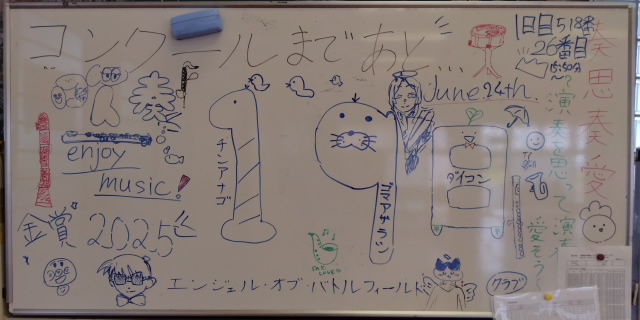 コンクールまであと...
1日目 518番
26番目
15:50分〜
June 24th.
enjoy
music!
チンアナゴ
ゴマアザラシ
ダイコン
奏思奏愛
〜演奏を思って演奏
愛そう〜
金賞 2025
エンジェル・オブ・バトルフィールド
クラブ